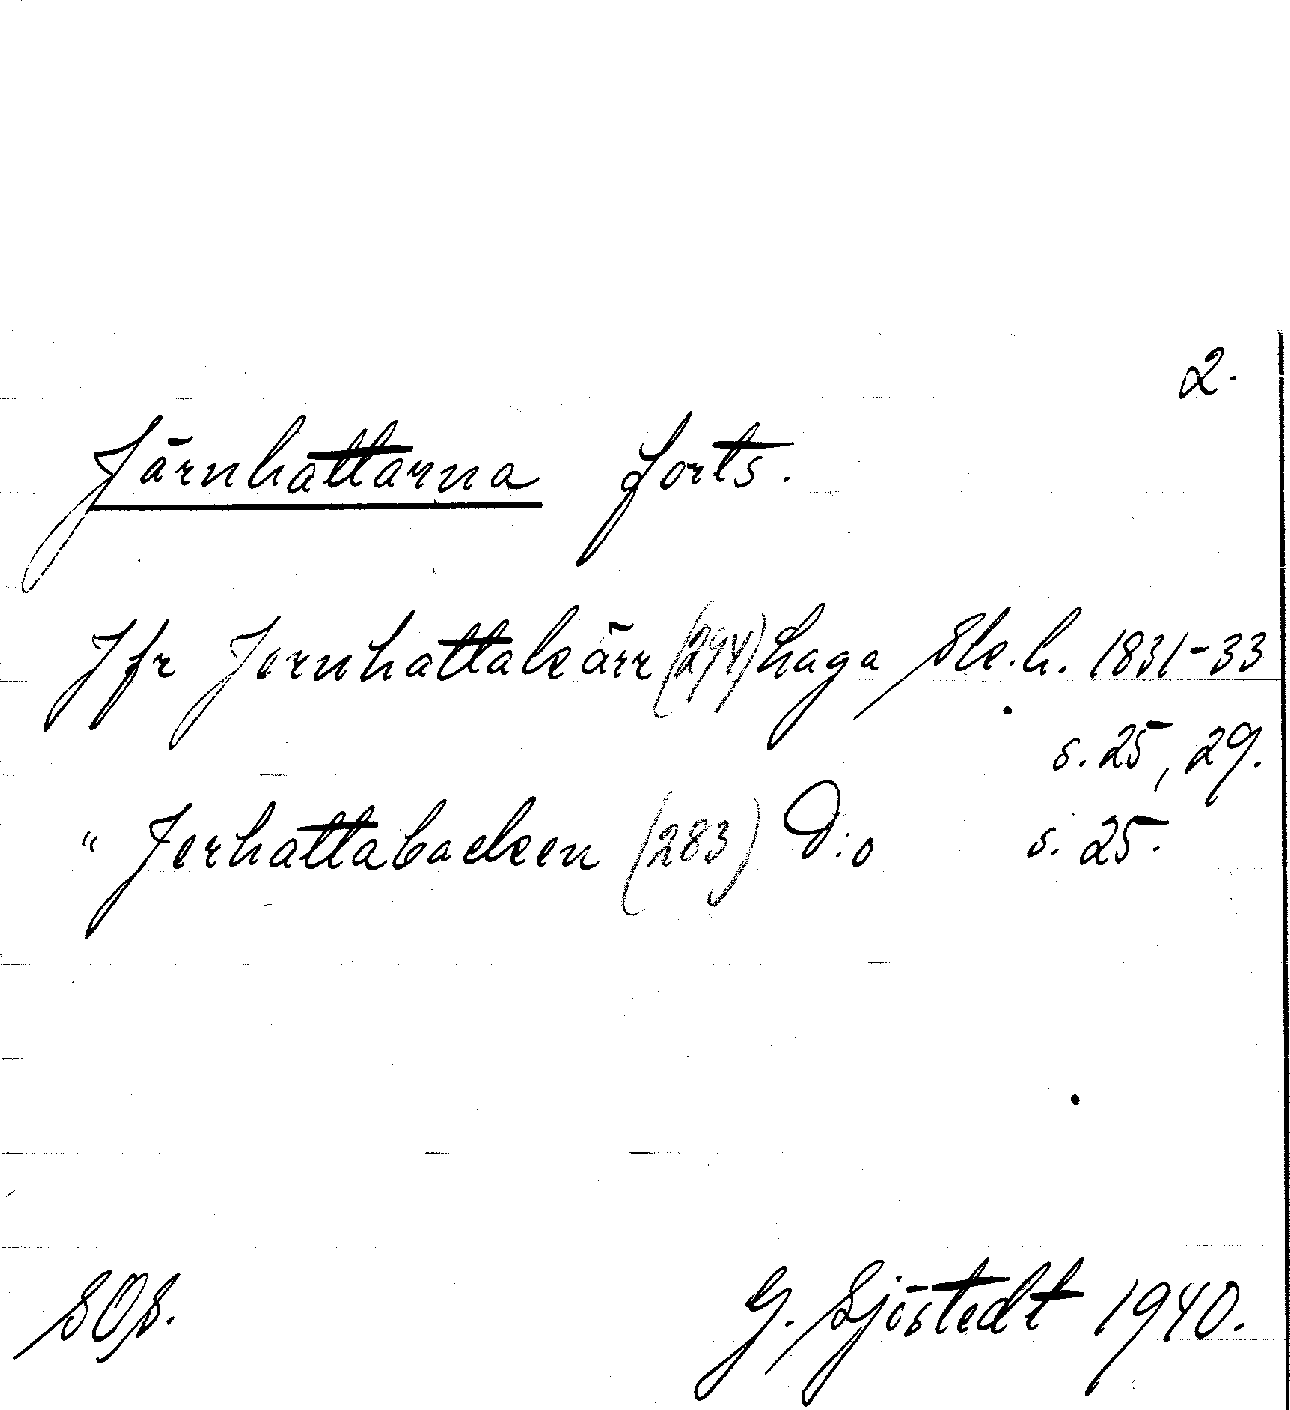 2.
Järnhattarna forts.
Jfr Jernhattakärr (294) Laga Sk.h. 1831-33
s. 25, 29.
" Jerhattabacken (283) D:o s. 25.
SOS. G. Sjöstedt 1940.